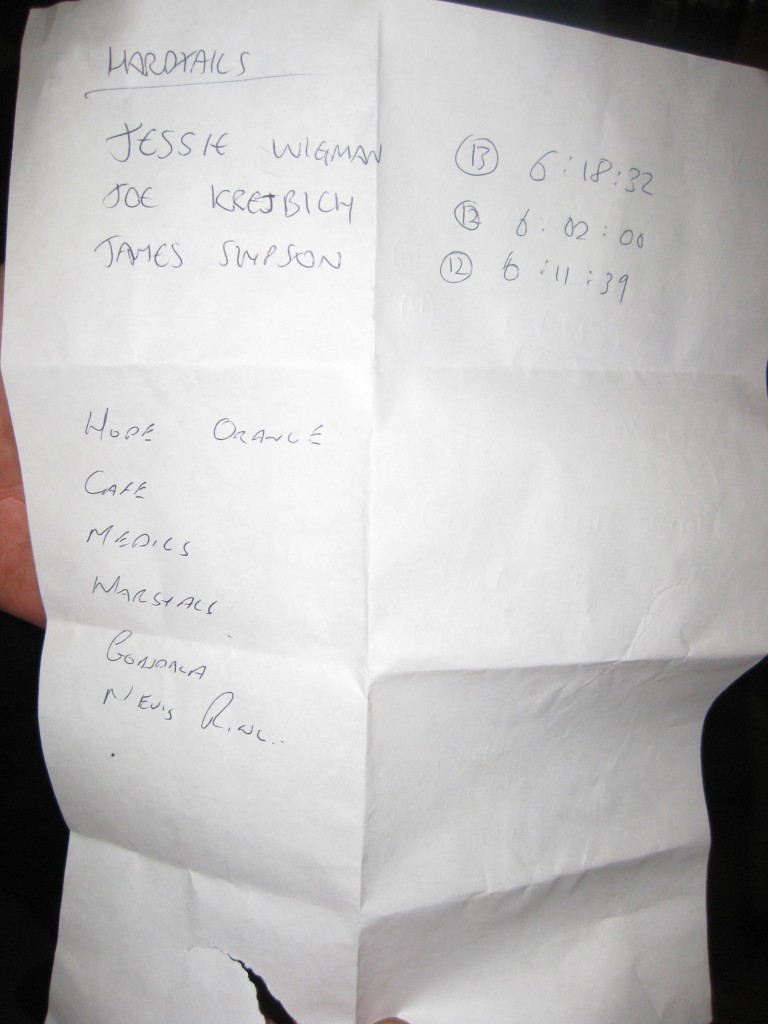 HARDTAILS
JESSIE WIGMAN 13 6:18:32
JOE KREJBICH 12 6:02:00
JAMES SIMPSON 12 6:11:39
HOPE ORANGE
CAFE
MEDICS
MARSHALS
GONDALA
NEVIS RING..